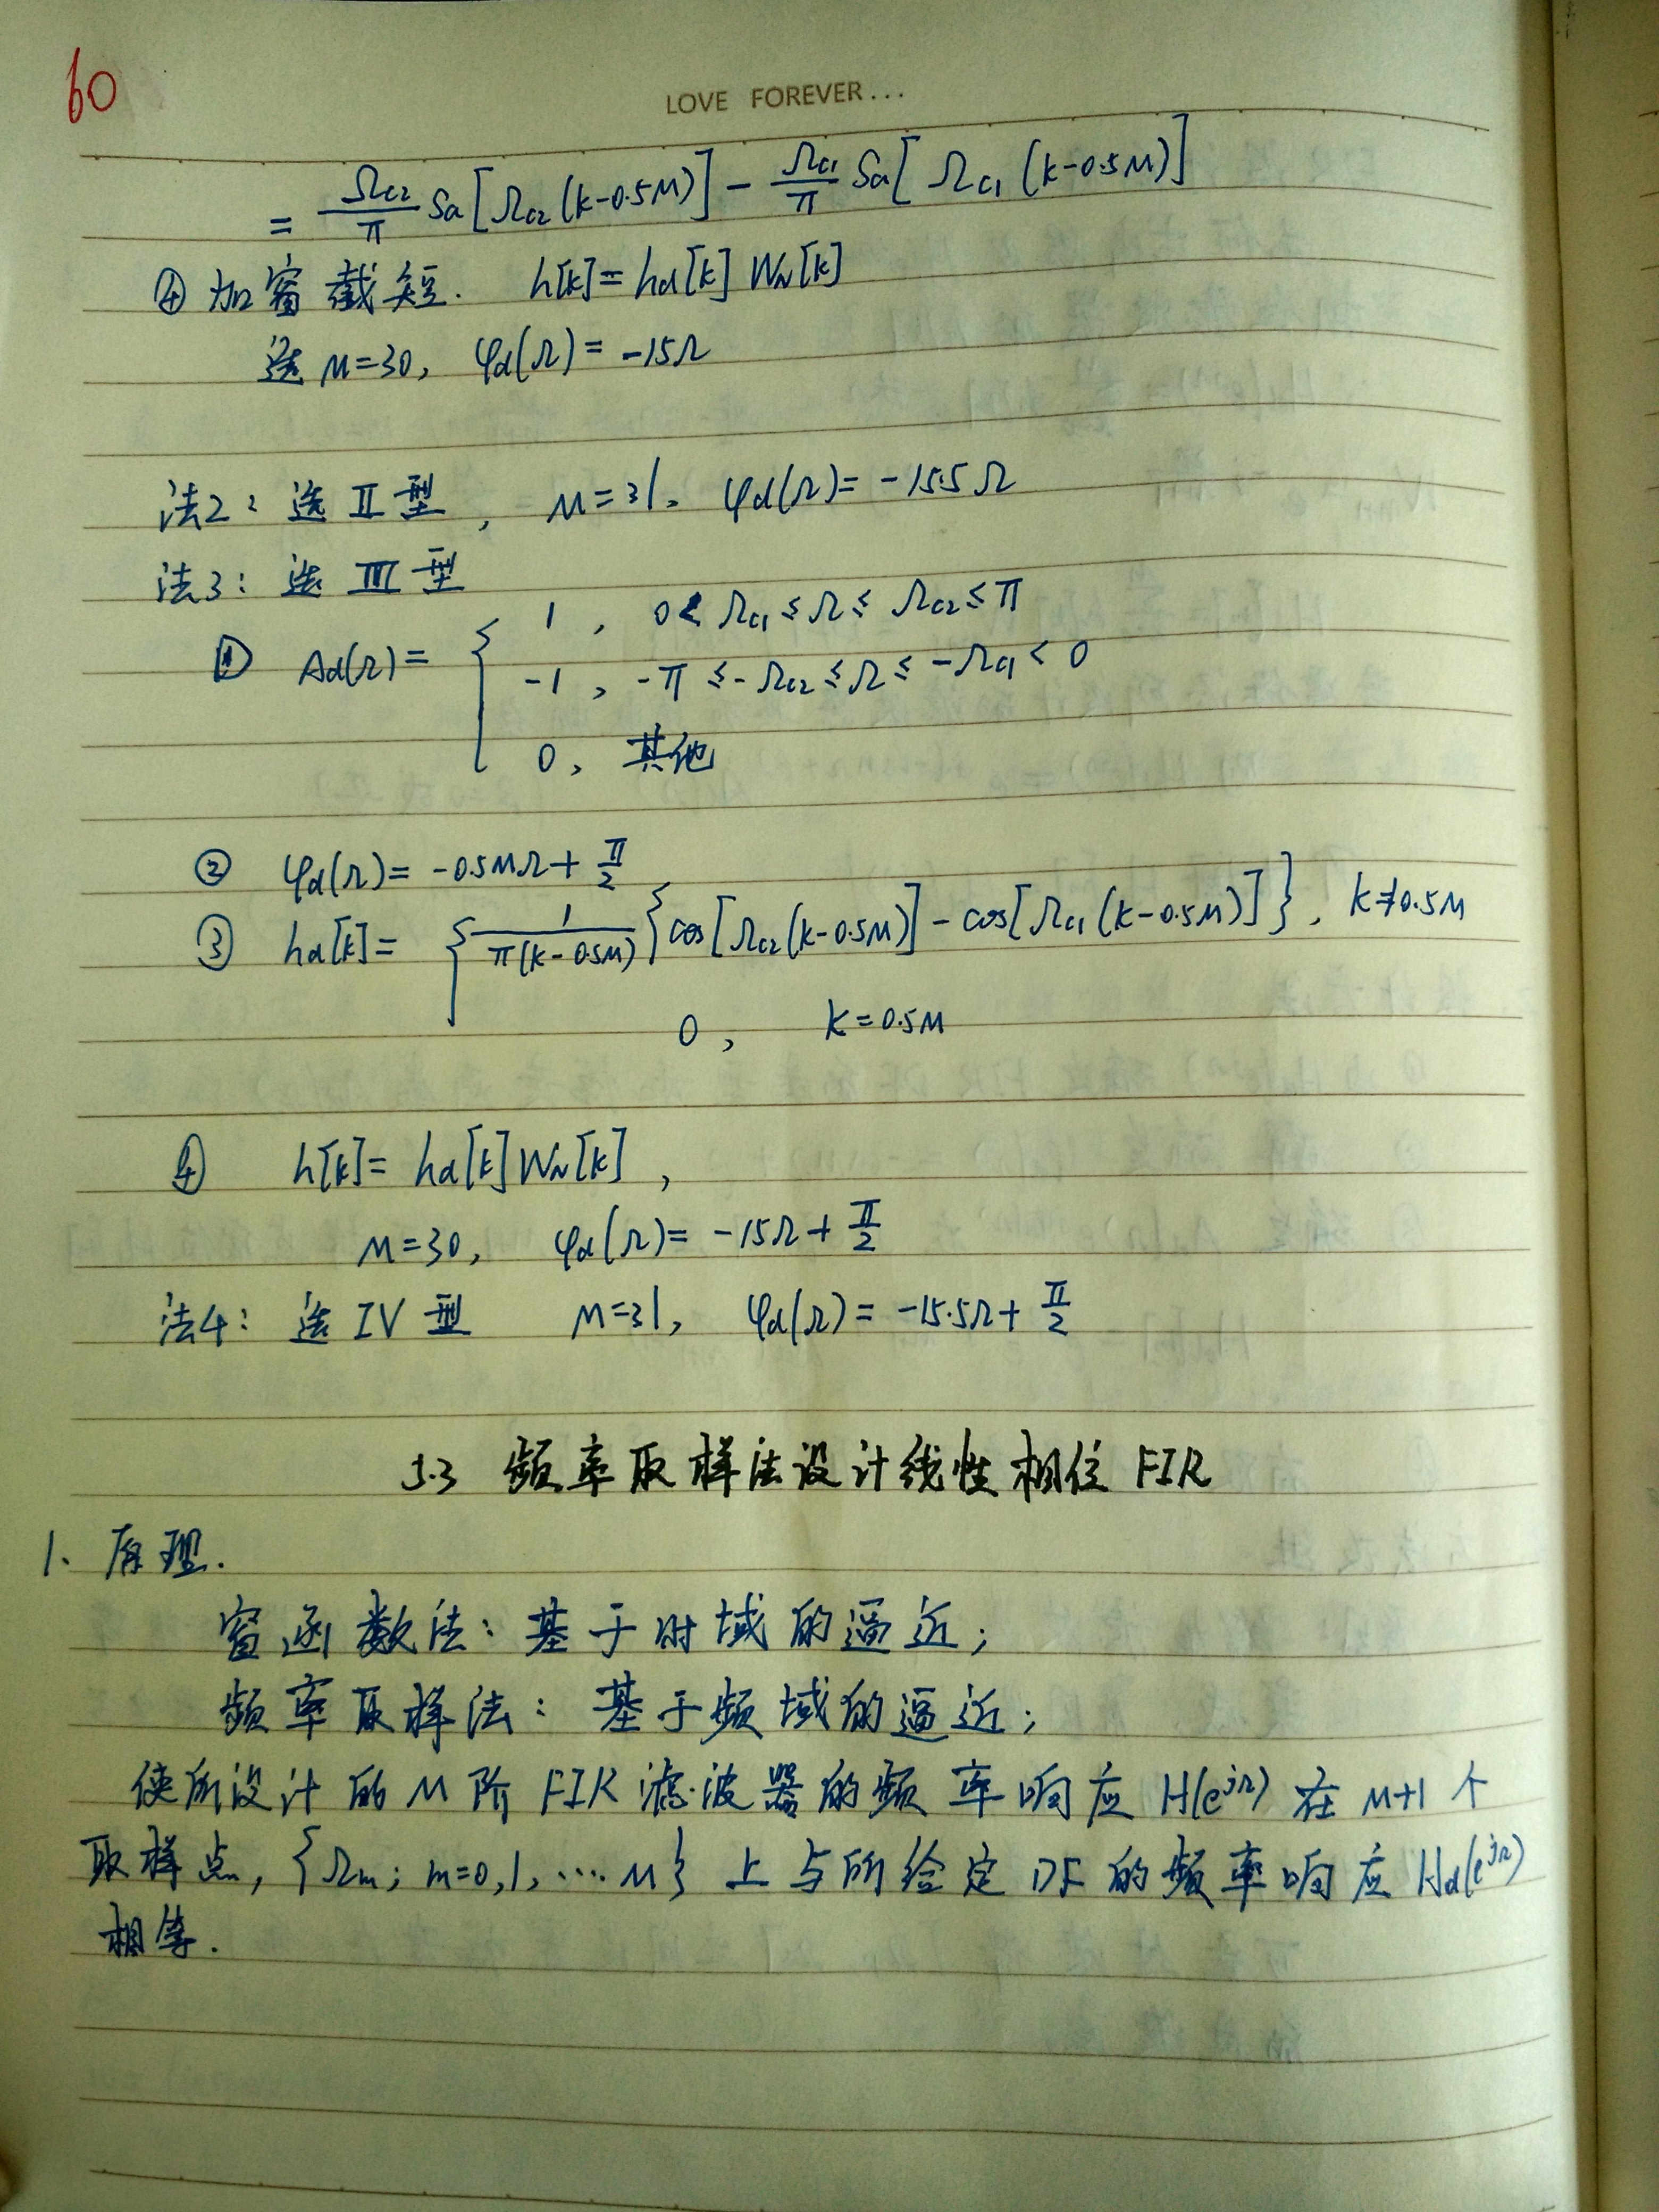 60
LOVE FOREVER...
= Ωc2/π Sa[Ωc2(k-0.5M)] - Ωc1/π Sa[Ωc1(k-0.5M)]
④ 加窗截短. h[k]=hd[k]WN[k]
选M=30, φd(Ω)=-15Ω
法2: 选Ⅱ型, M=31. φd(Ω)=-15.5Ω
法3: 选Ⅲ型
① Ad(Ω)= { 1, 0<Ωc1≤Ω≤Ωc2≤π
-1, -π≤-Ωc2≤Ω≤-Ωc1<0
0, 其他
② φd(Ω)=-0.5MΩ+π/2
③ hd[k]= { 1/π(k-0.5M) {cos[Ωc2(k-0.5M)]-cos[Ωc1(k-0.5M)]}, k≠0.5M
0, k=0.5M
④ h[k]=hd[k]WN[k],
M=30, φd(Ω)=-15Ω+π/2
法4: 选IV型 M=31, φd(Ω)=-15.5Ω+π/2
5.3 频率取样法设计线性相位FIR
1. 原理.
窗函数法: 基于时域的逼近;
频率取样法: 基于频域的逼近;
使所设计的M阶FIR滤波器的频率响应H(e^jΩ)在M+1个
取样点, {Ωm; m=0,1,...M}上与所给定DF的频率响应Hd(e^jΩ)
相等.